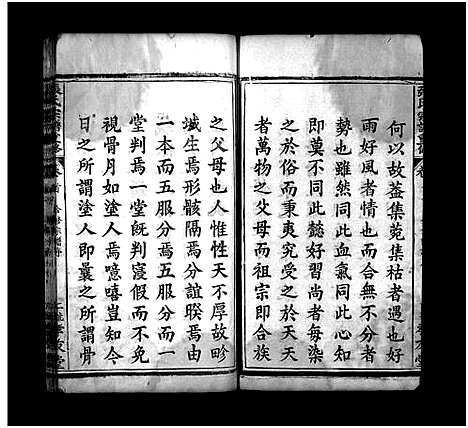 何以故葢集菀集枯者遇也好
雨好風者情也而合無不分者
勢也雖然同此血氣同此心知
即莫不同此懿好習尚者每染
之於俗而秉夷究受之於天天
者萬物之父母而祖宗即合族
之父母也人惟性天不厚故畛
域生焉形骸隔焉分誼暌焉由
一本而五服分焉五服分而一
堂判焉一堂旣判寖假而不免
視骨月如塗人焉噫嘻豈知今
日之所謂塗人即曩之所謂骨